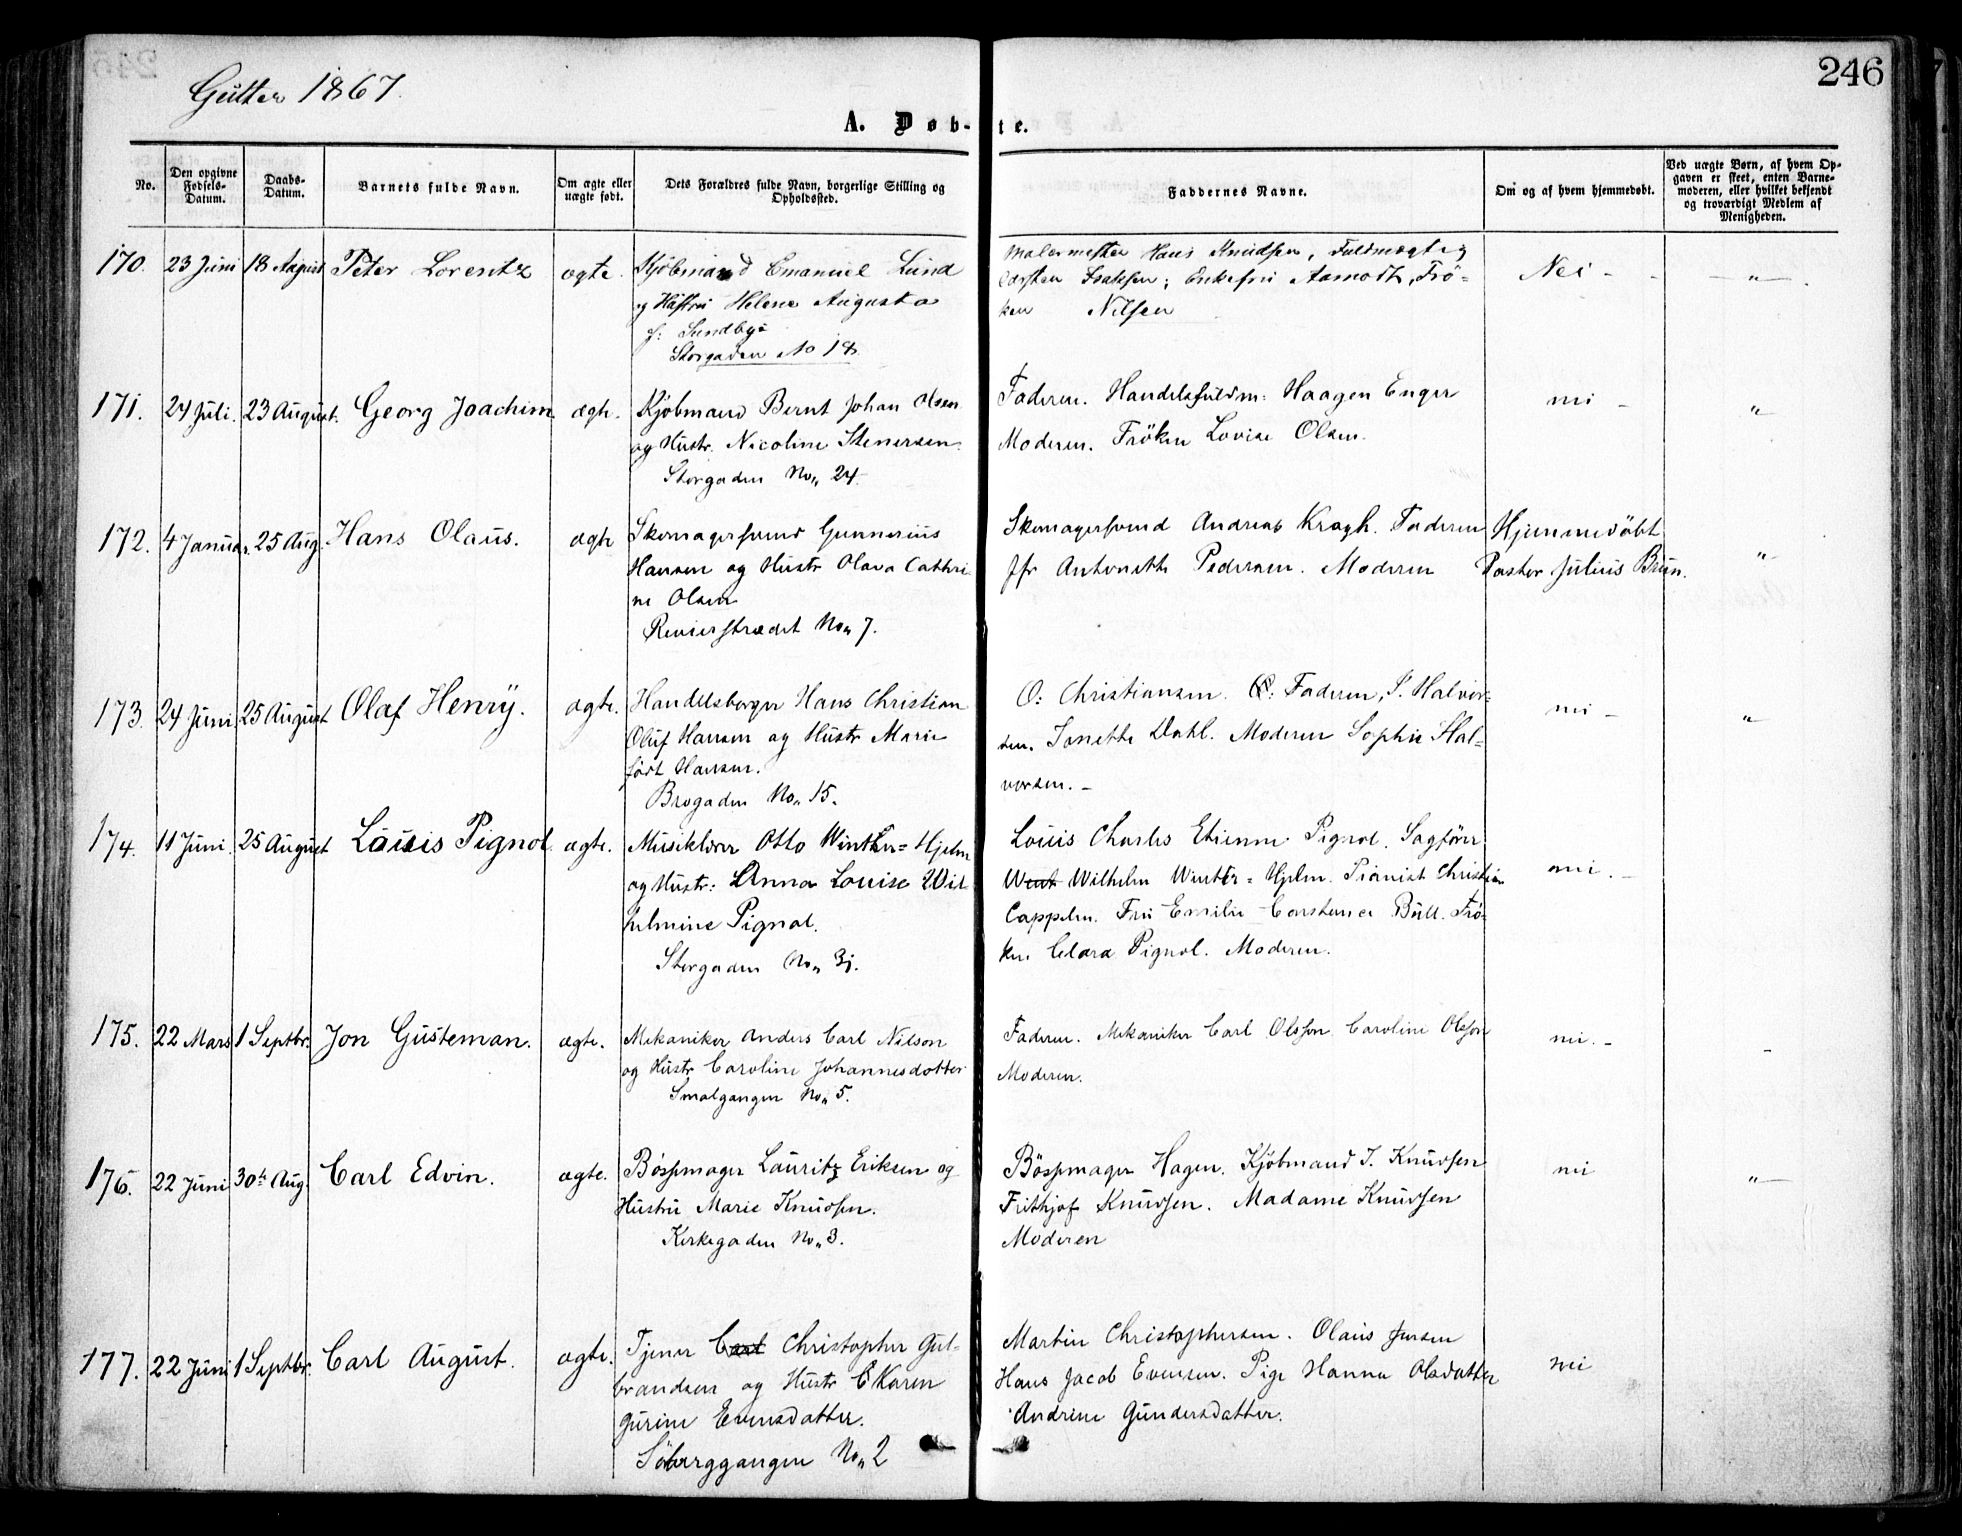 246
Gutter 1867.
A. Døb- te.
No.
Den opgivne Fødsels-Datum.
Daabs-Datum.
Barnets fulde Navn.
Om ægte eller uægte født.
Dets Forældres fulde Navn, borgerlige Stilling og Opholdssted.
Faddernes Navne.
Om og af hvem hjemmedøbt.
Ved uægte Børn, af hvem Opgaven er skeet, enten Barnemoderen, eller hvilket bekjendt og troværdigt Medlem af Menigheden.
170. 23 Juni 18 August Peter Lorentz ægte.
Kjöbmand Emanuel Lund
og Hustru Helene Augusta
f: Sundbye
Storgaden No 18
Malermester Hans Knudsen, Fuldmægtig
Carsten Isaksen; Enkefru Aamodt, Frö-
ken Nilsen
Nei - - „
171. 24 Juli. 23 August. Georg Joachim ægte.
Kjöbmand Bernt Johan Olsen
og Hustr. Nicoline Stenersen.
Storgaden No„ 24.
Faderen. Handelsfuldm: Haagen Enger
Moderen. Fröken Lovise Olsen.
nei - „
172. 4 Januar. 25 Aug. Hans Olaus. ægte
Skomagersvend Gunnerius
Hansen og Hustr Olava Cathri-
ne Olsen
Revierstrædet No„ 7.
Skomagersvend Andreas Kragh. Faderen
Jfr Antonette Pedersen. Moderen
Hjemmedöbt
Pastor Julius Brun. „
173. 24 Juni 25 August Olaf Henry. ægte.
Handelsborger Hans Christian
Oluf Hansen og Hustr Marie
födt Hansen.
Brogaden No„ 15.
O: Christiansen. Faderen, P. Halvor-
sen. Janette Dahl. Moderen Sophie Hal-
vorsen. -
nei - „
174. 11 Juni. 25 August Louis Pignol ægte.
Musiklærer Otto Winther= Hjelm
og Hustr: Anna Louise Wil
helmine Pignol.
Storgaden No„ 31.
Louis Charles Etienne Pignol. Sagförer
Wilhelm Winter= Hjelm. Pianist Christian
Cappelen. Fru Emilie Constance Bull. Frö-
ken Clara Pignol. Moderen.
nei. -
175. 22 Mars 1 Septbr. Jon Gusteman. ægte.
Mekaniker Anders Carl Nilson
og Hustr Caroline Johannesdotter
Smalgangen No„ 5.
Faderen. Mekaniker Carl Olsson Caroline Olsson
Moderen.
nei. - -
176. 22 Juni 30te Aug. Carl Edvin. ægte.
Bössemager Lauritz Eriksen og
Hustru Marie Knudsen.
Kirkegaden No„ 3.
Bössemager Hagen. Kjöbmand I. Knudsen
Frithjof Knudsen. Madame Knudsen
Moderen
nei „
177. 22 Juni 1 Septbr. Carl August. ægte.
Tjener Carl Christopher Gul-
brandsen og Hustr Karen
Gurine Evensdatter.
Söberggangen No„ 2
Martin Christophersen. Olaus Jensen
Hans Jacob Evensen. Pige Hanna Olsdatter
Andrine Gundersdatter.
nei